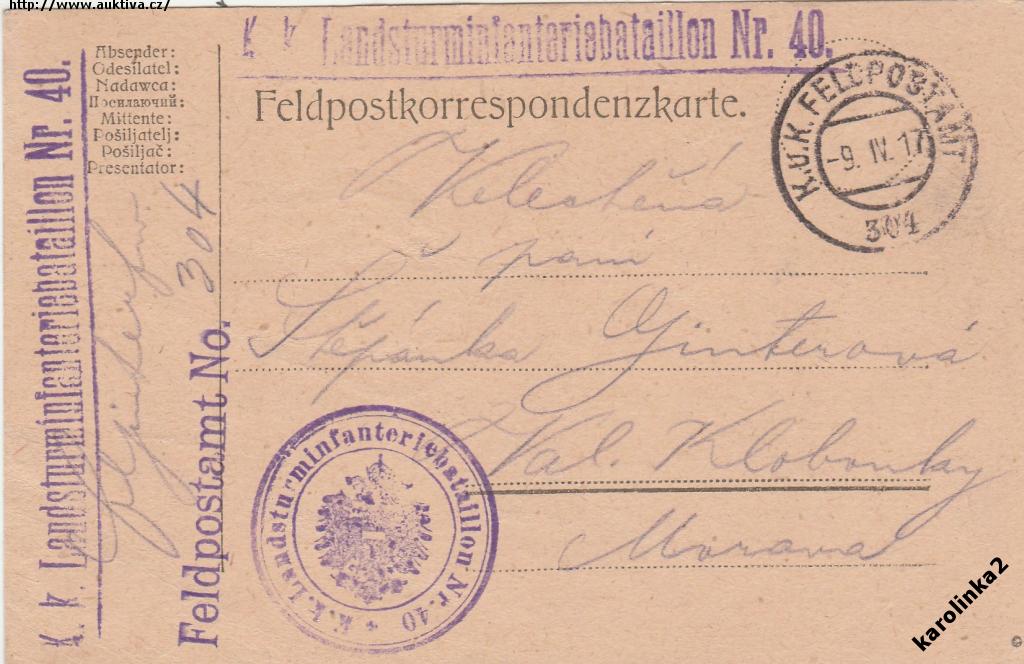 http://www.auktiva.cz/
K. k. Landsturminfanteriebataillon Nr. 40.
Absender:
Odesílatel:
Nadawca:
Посилаючий:
Mittente:
Pošiljatelj:
Pošiljač:
Presentator:
Feldpostkorrespondenzkarte.
K.u.K. FELDPOSTAMT
-9. IV. 17
304
K. k. Landsturminfanteriebataillon Nr. 40.
Feldpostamt No. 304
paní
Štěpánka Ginterová
Val. Klobouky
Morava
k.k. Landsturminfanteriebataillon Nr. 40 *
karolinka2